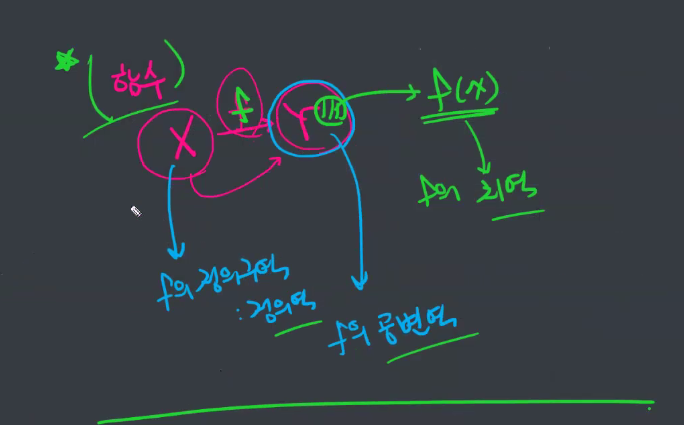 함수
X f Y f(x)
f의 치역
f의 정의구역
: 정의역
f의 공변역